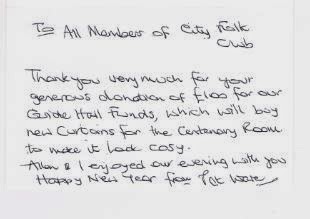 To All Members of City Folk
Club
Thankyou very much for your
generous donation of £100 for our
Guide Hall Funds, which will buy
new Curtains for the Centenary Room
to make it look cosy.
Allan & I enjoyed our evening with you
Happy New Year from Pat